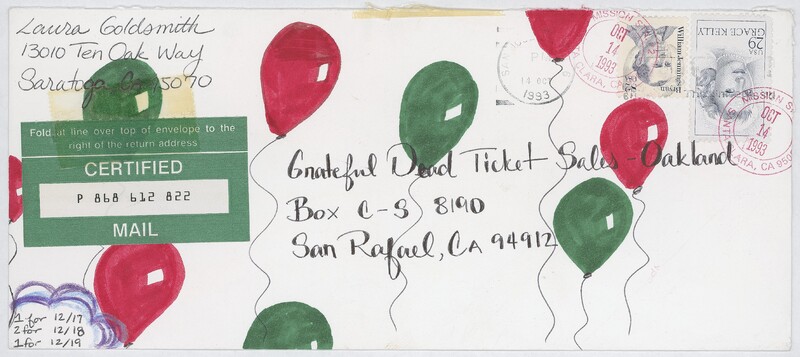 Laura Goldsmith
13010 Ten Oak Way
Saratoga Ca 95070
Fold at line over top of envelope to the
right of the return address
CERTIFIED
P 868 612 822
MAIL
PM
14 OCT
1993
MISSION
OCT
14
1993
CLARA, CA
William Jennings
Bryan
USA
29
GRACE KELLY
MISSION
OCT
14
1993
CLARA, CA 950
Grateful Dead Ticket Sales - Oakland
Box C-S 8190
San Rafael, CA 94912
1 for 12/17
2 for 12/18
1 for 12/19